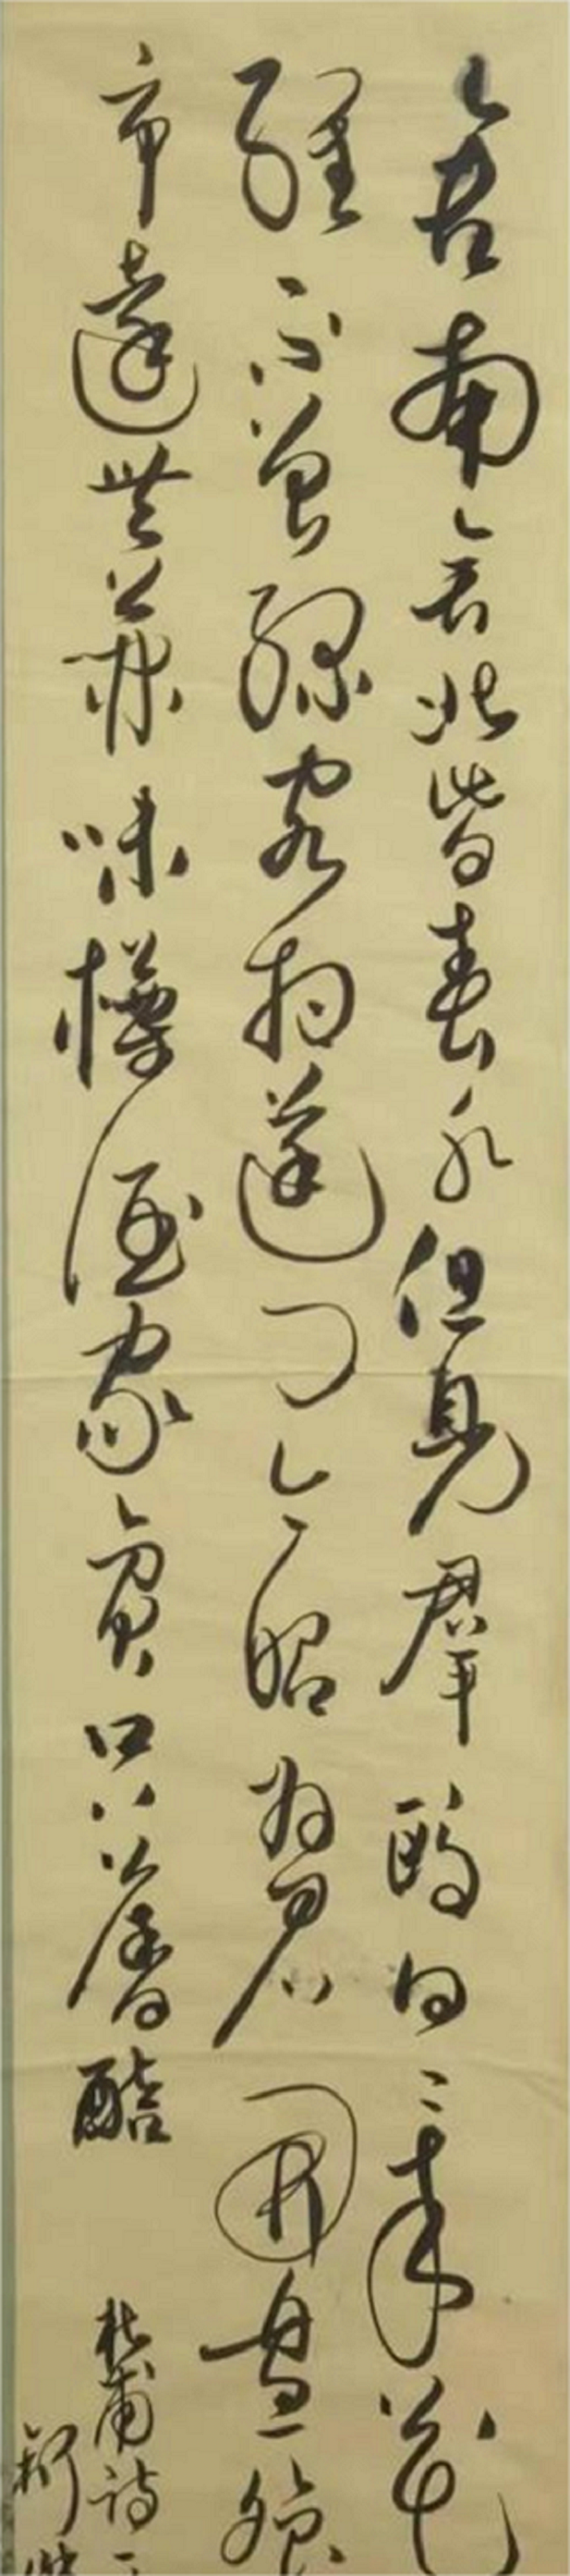 舍南舍北皆春水但見羣鷗日〻來花
經不曾緣客掃蓬門今始為君開盤飧
市遠無兼味樽酒家貧只舊醅
杜甫詩一